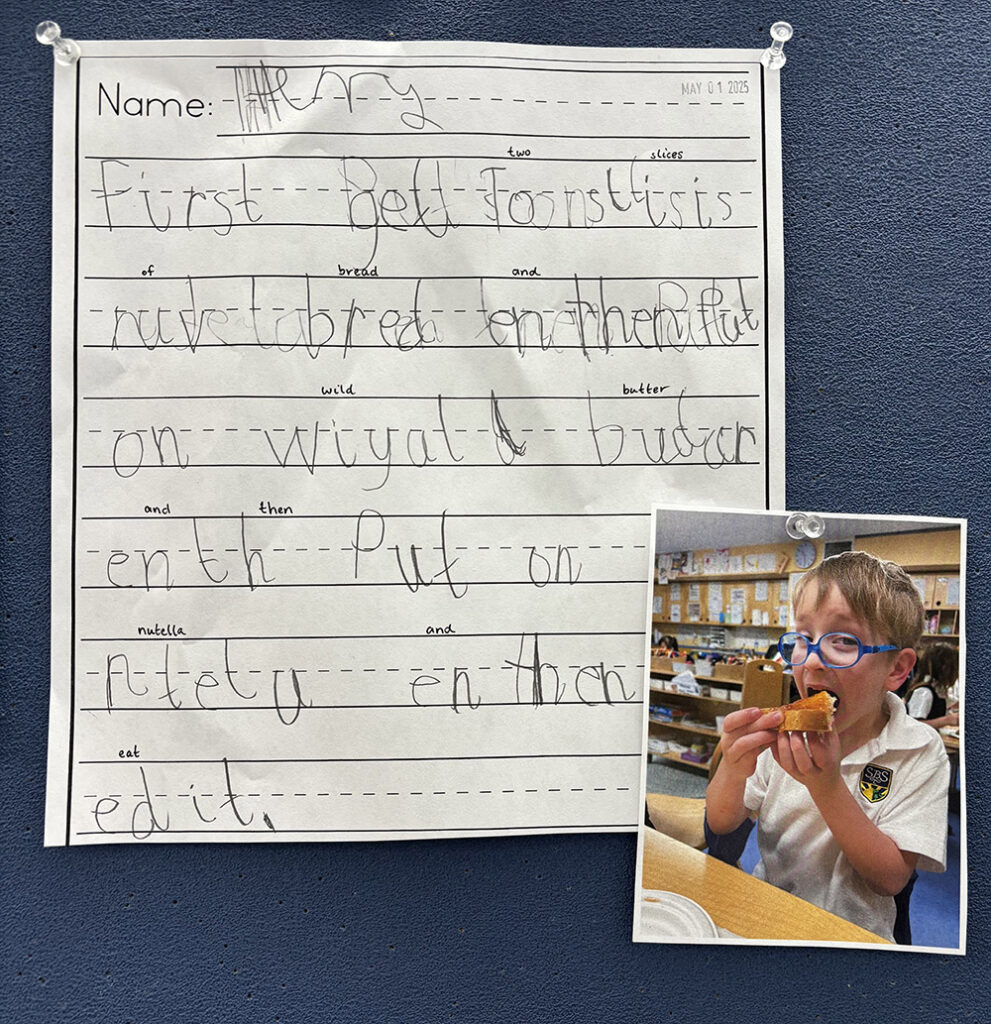 Name: Henry
MAY 01 2025
two slices
First Gett
of bread and
bred en then Put
wild butter
on wiyal budar
and then
en th Put on
nutella and
ntetu en then
eat
ed it.
SBS